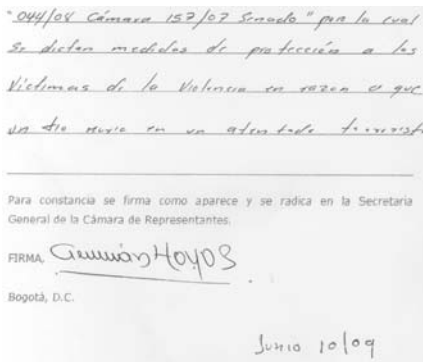 "044/08 Cámara 157/07 Senado" por la cual
se dictan medidas de protección a las
Víctimas de la Violencia en razon a que
un tio murio en un atentado terrorist
Para constancia se firma como aparece y se radica en la Secretaria
General de la Cámara de Representantes.
FIRMA, Germán Hoyos
Bogotá, D.C.
Junio 10/09